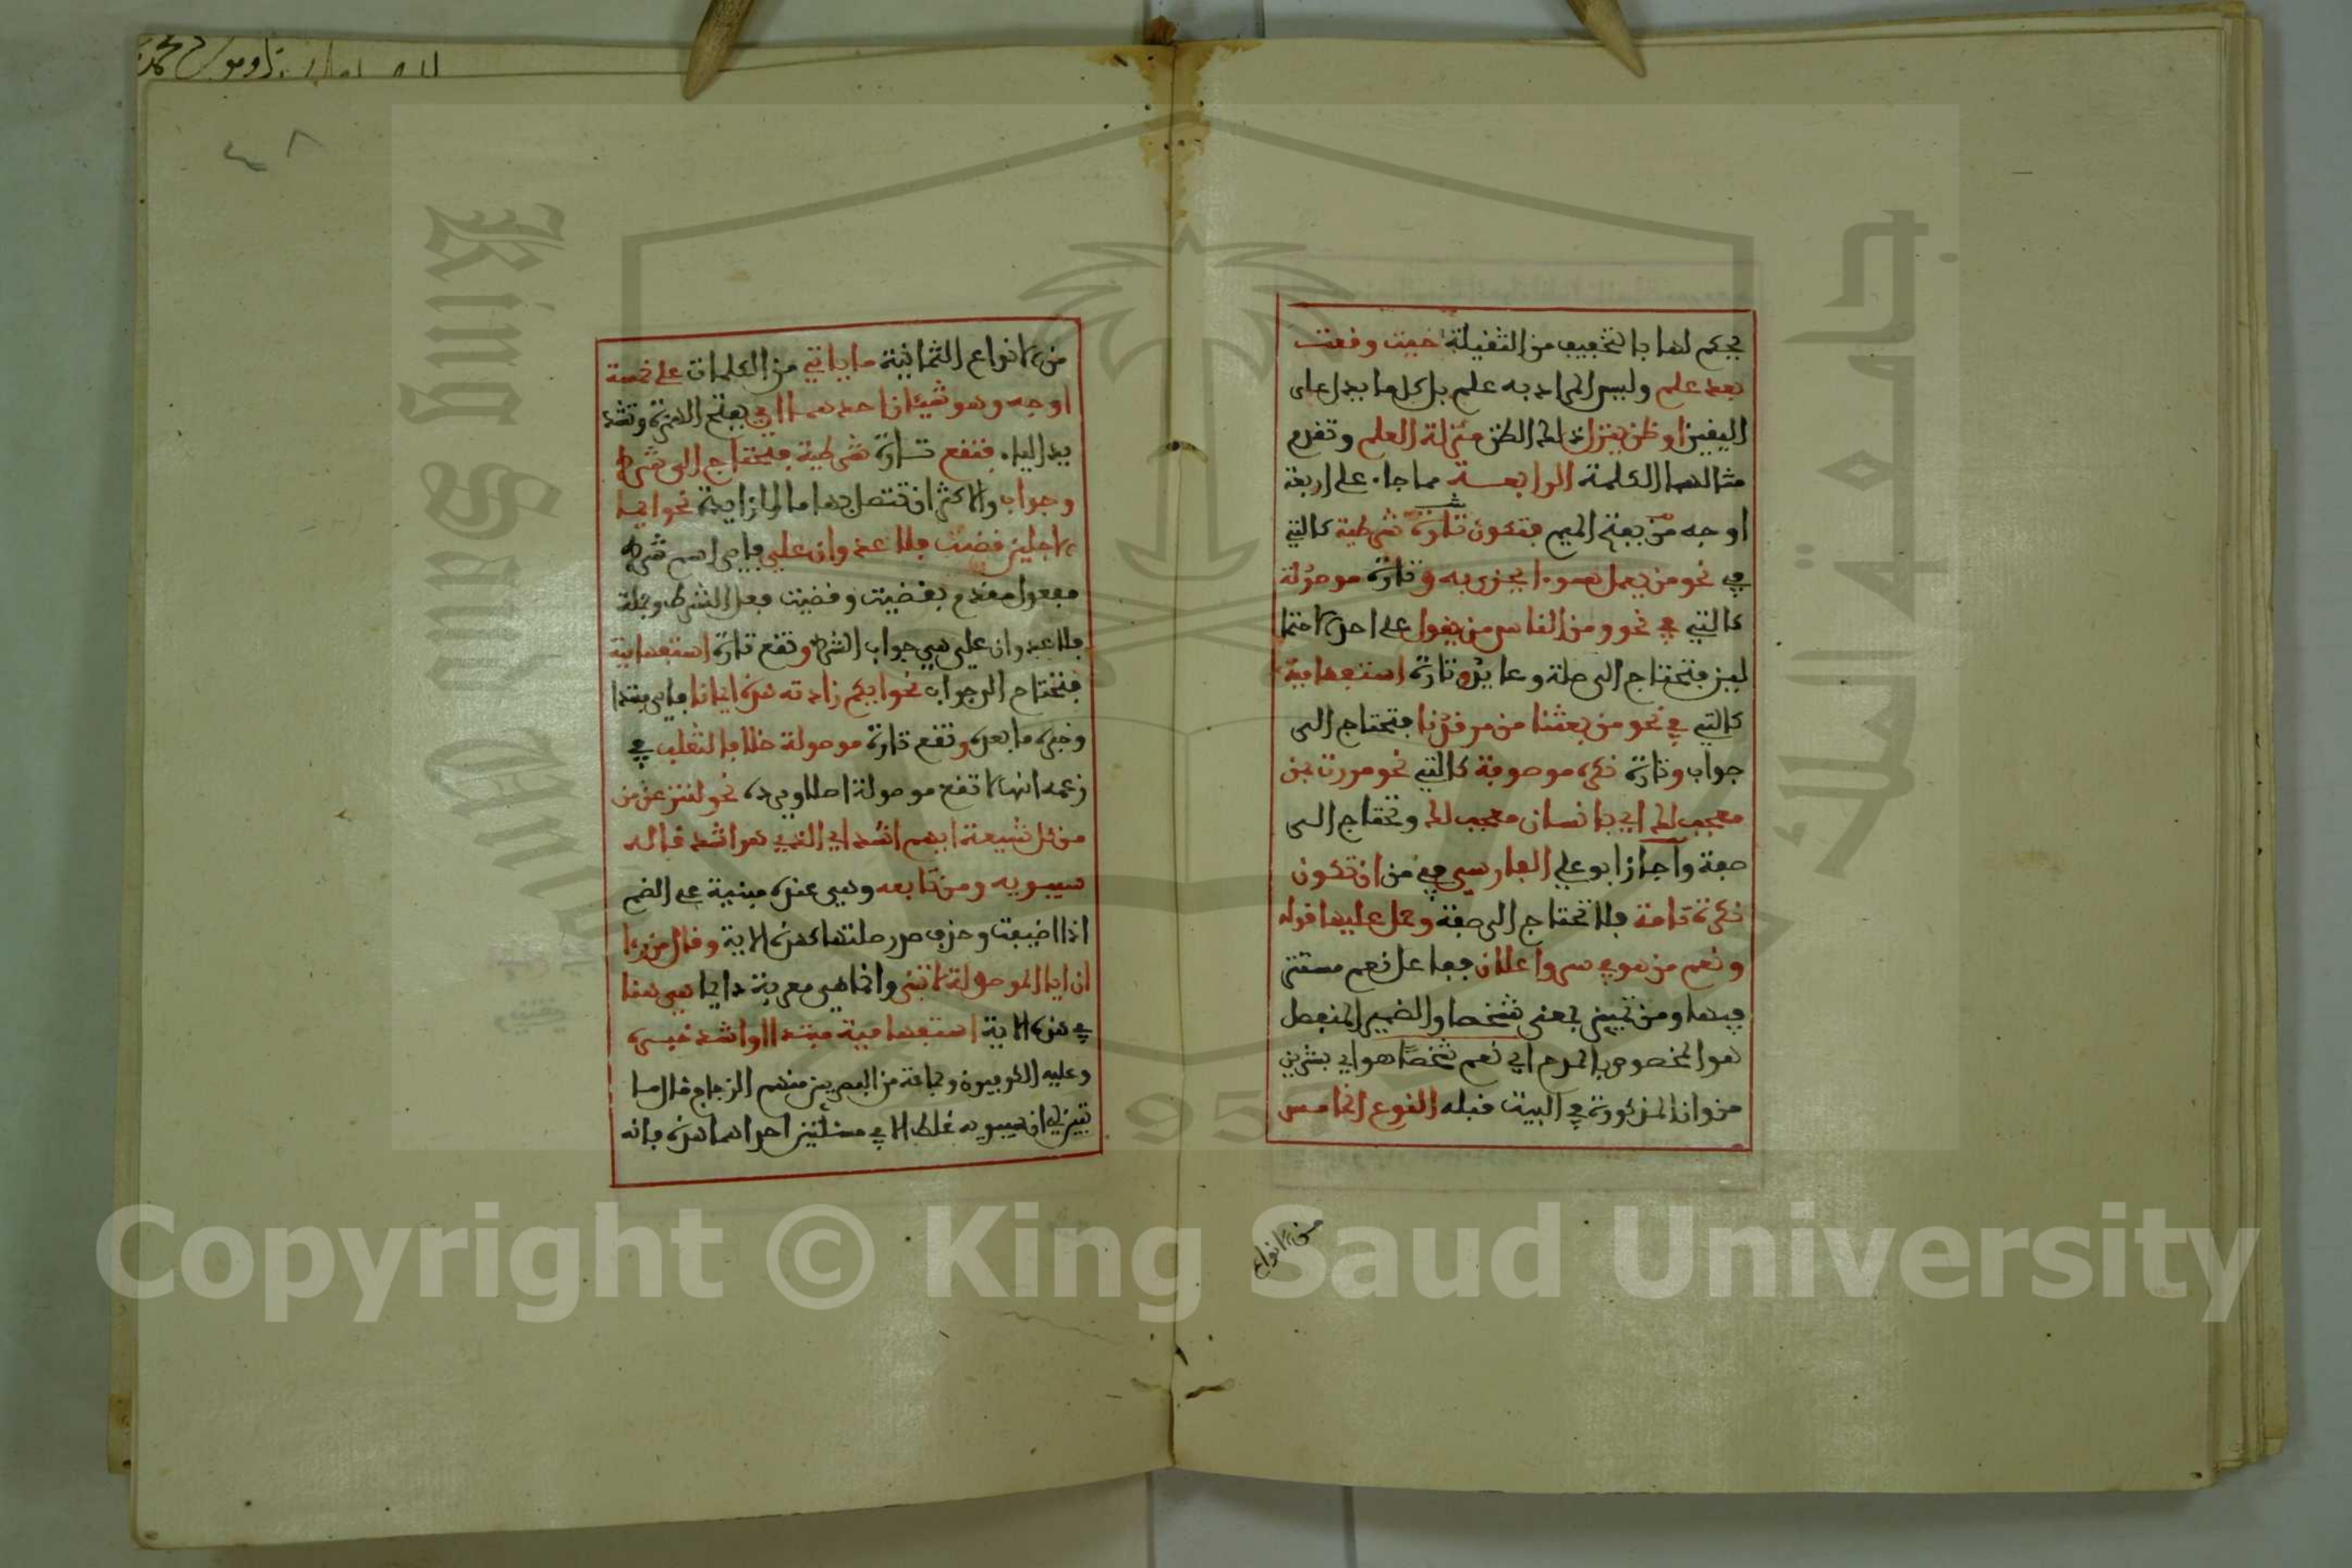 يحكم لها بالتخفيف من الثقيلة حيث وقعت
بعد علم وليس المراد به علم بل كل ما يدل على
اليقين او ظن ينزل ذلك الظن منزلة العلم وتقدم
مثالهما الكلمة الرابعة مما جاء على اربعة
اوجه من بفتح الميم فتكون تارة شرطية كالتي
في نحو من يعمل سوءا يجز به وتارة موصولة
كالتي في نحو ومن الناس من يقول على احد الاحتما
لين فتحتاج الى صلة وعايد وتارة استفهامية
كالتي في نحو من بعثنا من مرقدنا فتحتاج الى
جواب وتارة نكرة موصوفة كالتي نحو مررت بمن
معجب لك اي بانسان معجب لك وتحتاج الى
صفة واجاز ابو علي الفارسي في من ان تكون
نكرة تامة فلا تحتاج الى صفة وحمل عليها قوله
ونعم من هو في سر واعلان ففاعل نعم مستتر
فيها ومن تمييز بمعنى شخصا والضمير المنفصل
هو المخصوص بالمدح اي نعم شخصا هو اي بشر بن
مروان المذكور في البيت قبله النوع الخامس
من الانواع
٤٨
من الانواع الثمانية ما ياتي من الكلمات على خمسة
اوجه وهو شيئان احدهما اي بفتح الهمزة وتشد
يد الياء فتقع تارة شرطية فتحتاج الى شرط
وجواب والاكثر ان تتصل بها ما الزايدة نحو ايما
الاجلين قضيت فلا عدوان علي فاي اسم شرط
مفعول مقدم بقضيت وقضيت فعل الشرط وجملة
فلا عدوان علي هي جواب الشرط وتقع تارة استفهامية
فتحتاج الى جواب نحو ايكم زادته هذه ايمانا فاي مبتدا
وخبره ما بعده وتقع تارة موصولة خلافا لثعلب في
زعمه انها لا تقع موصولة اصلا ويرده نحو لننزعن من
من كل شيعة ايهم اشد اي الذي هو اشد قاله
سيبويه ومن تابعه وهي عنده مبنية على الضم
اذا اضيفت وحذف صدر صلتها كهذه الاية وقال من راى
ان ايا الموصولة لا تبنى وانما هي معربة دايما هي هنا
في هذه الاية استفهامية مبتدا واشد خبره
وعليه الكوفيون وجماعة من البصريين منهم الزجاج قال ما
تبين لي ان سيبويه غلط الا في مسئلتين احداهما هذه فانه
Copyright © King Saud University